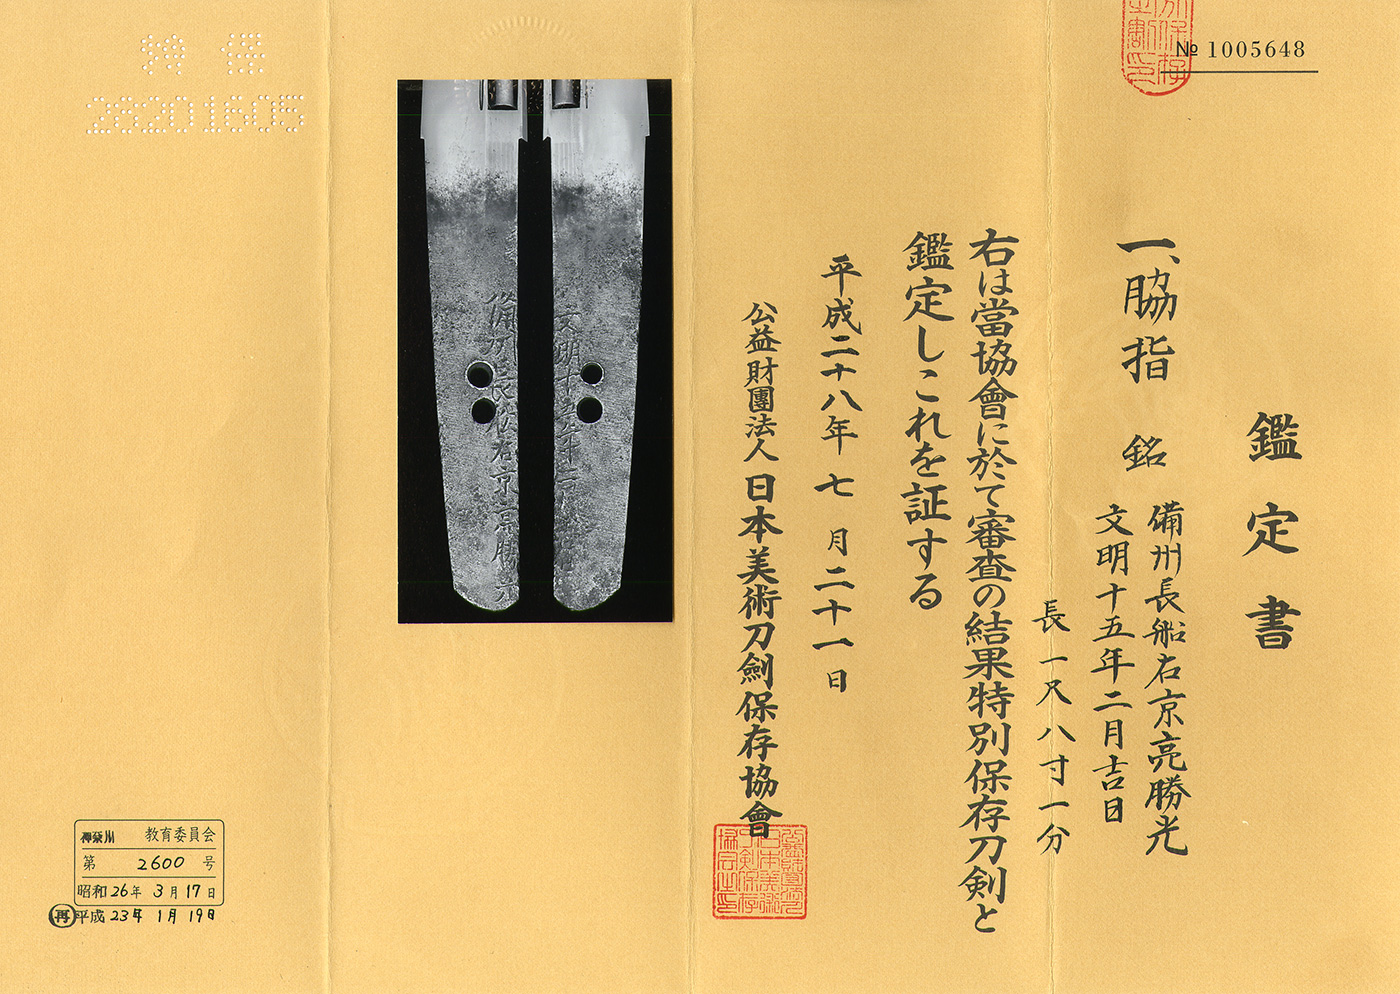 № 1005648
鑑定書
一、脇指 銘 備州長船右京亮勝光
文明十五年二月吉日
長一尺八寸一分
右は當協會に於て審査の結果特別保存刀剣と
鑑定しこれを証する
平成二十八年七月二十一日
公益財團法人日本美術刀劍保存協會
備州長船右京亮勝光
文明十五年二月吉日
特 保
28201605
神奈川 教育委員会
第 2600 号
昭和26年 3月17日
再 平成 23年 1月 19日